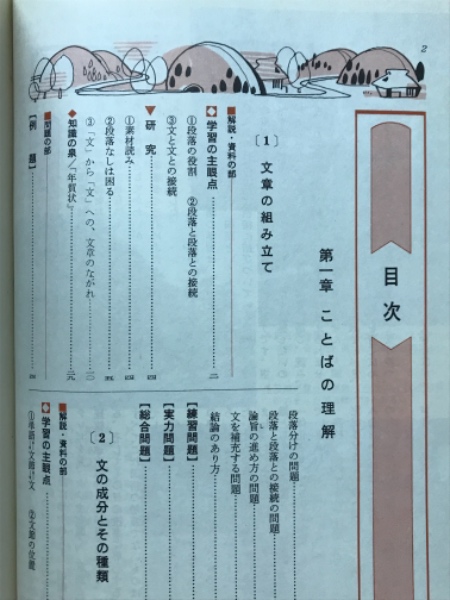 2
目次
第一章 ことばの理解
〔1〕 文章の組み立て
■解説・資料の部
◆学習の主眼点……二
①段落の役割 ②段落と段落との接続
③文と文との接続
▼研究……四
①素材読み……四
②段落なしは困る……五
③「文」から「文」への、文章のながれ……
◆知識の泉／『年賀状』……
■問題の部
【例題】……
段落分けの問題
段落と段落との接続の問題
論旨の進め方の問題
文を補充する問題
結論のあり方
【練習問題】
【実力問題】
【総合問題】
〔2〕 文の成分とその種類
■解説・資料の部
◆学習の主眼点